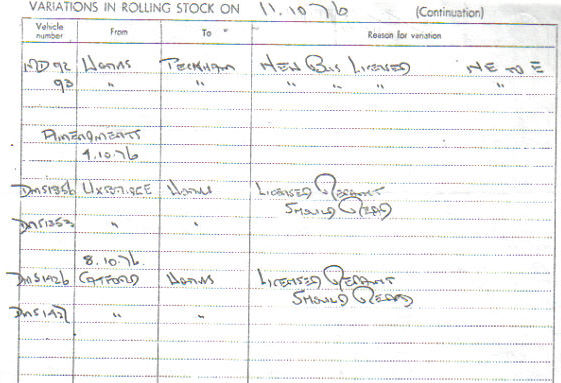 VARIATIONS IN ROLLING STOCK ON 11.10.76 (Continuation)
Vehicle number From To Reason for variation
MD 92 WORKS PECKHAM NEW BUS LICENSED NE TO E
93 " " " " " " "
AMENDMENTS
4.10.76
DMS1356 UXBRIDGE WORKS LICENSED REPAINT
SHOULD READ
DMS1353 " "
8.10.76.
DMS1426 CATFORD WORKS LICENSED REPAINT
SHOULD READ
DMS1427 " "